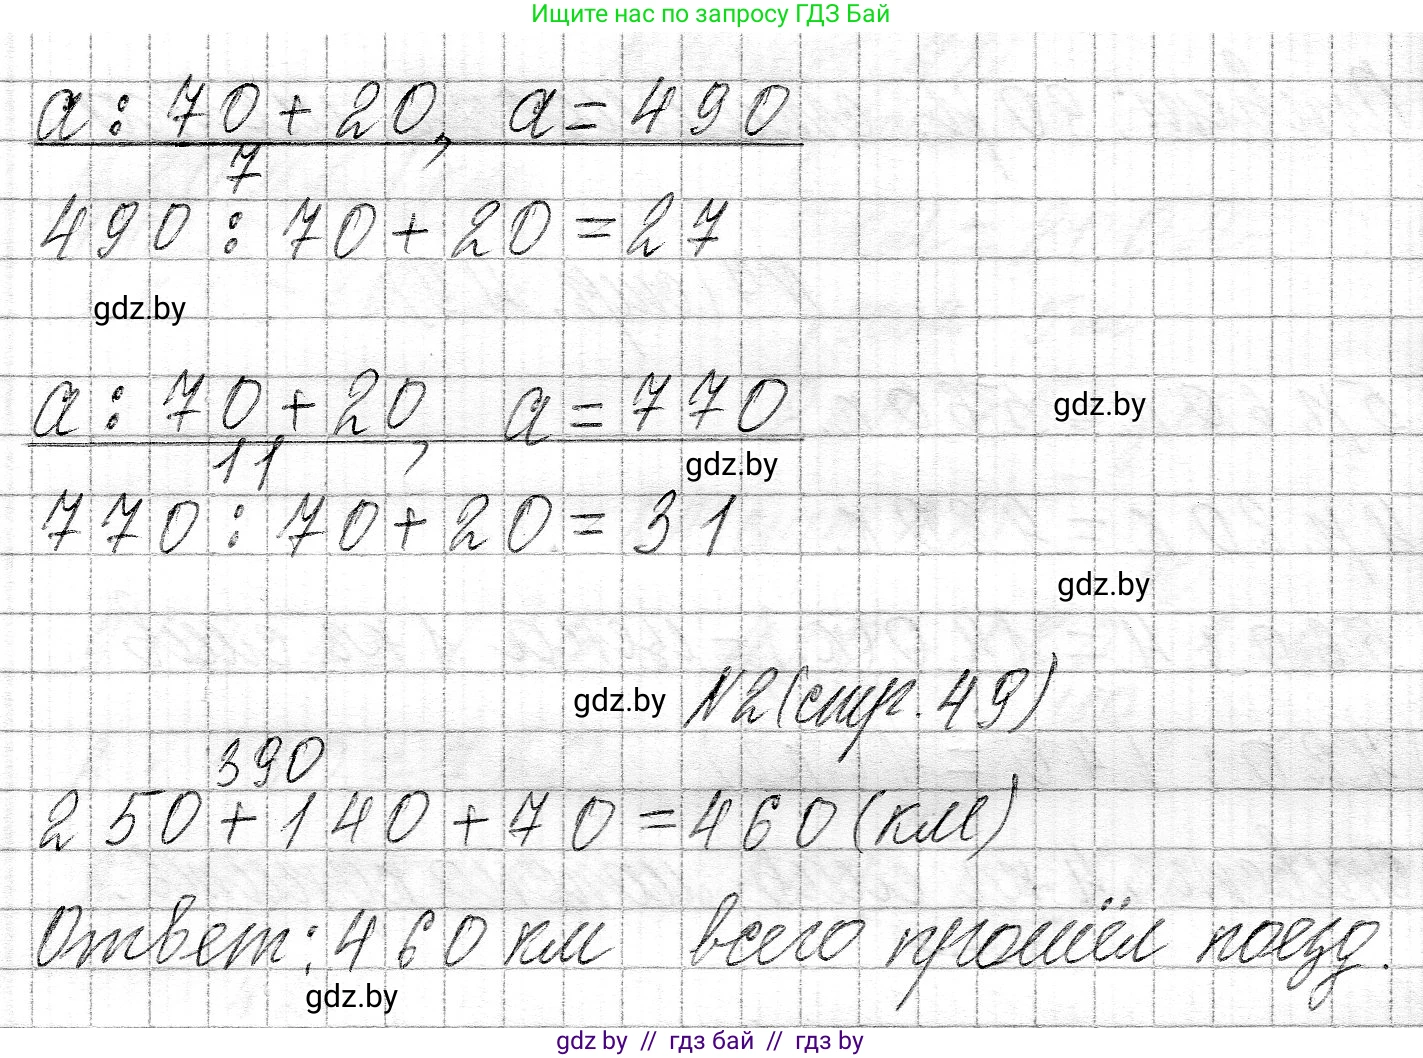 Ищите нас по запросу ГДЗ Бай
a : 70 + 20, a = 490
7
490 : 70 + 20 = 27
gdz.by
a : 70 + 20, a = 770
gdz.by
11
gdz.by
770 : 70 + 20 = 31
gdz.by
gdz.by
N2 (стр. 49)
390
250 + 140 + 70 = 460 (км)
Ответ: 460 км всего прошёл поезд.
gdz.by
gdz by // гдз бай // гдз by